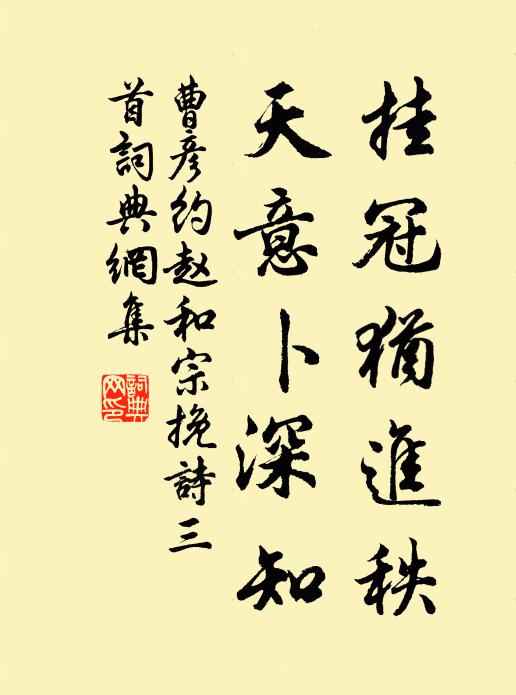 挂冠猶進秩
天意卜深知
曹彦約趙和宗挽詩三
首詞典網集
詞典
网印